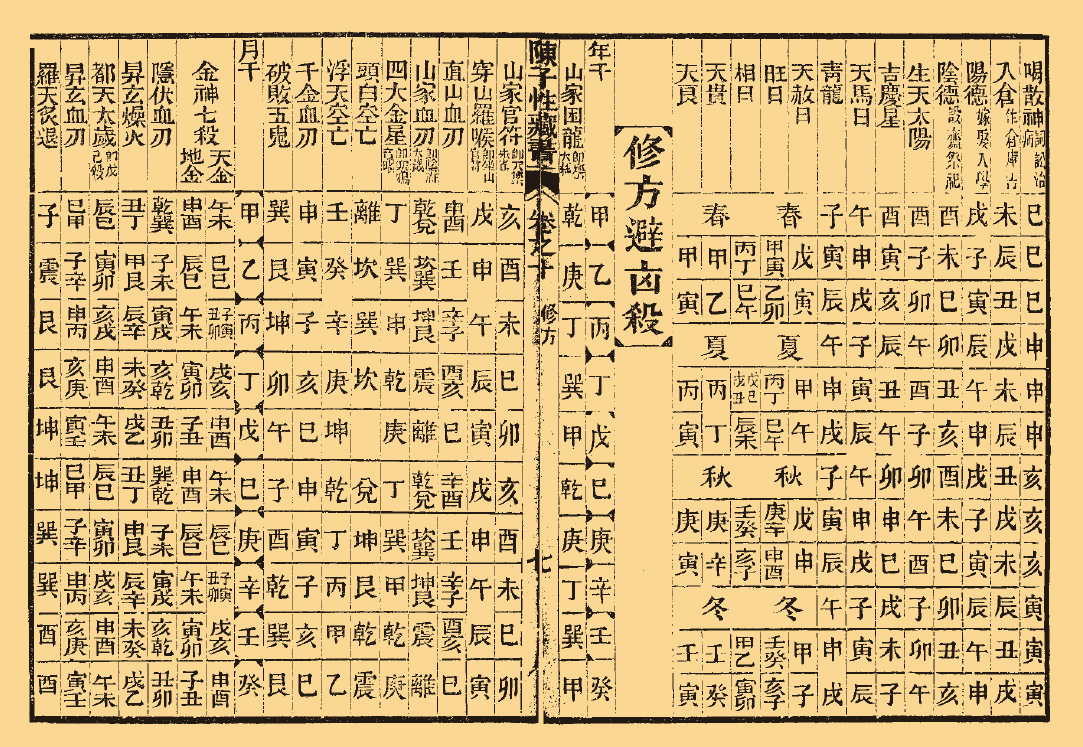 喝散神 詞訟治病 巳 巳 巳 申 申 申 亥 亥 亥 寅 寅 寅
入倉 作倉庫吉 未 辰 丑 戌 未 辰 丑 戌 未 辰 丑 戌
陽德 嫁娶入學 戌 子 寅 辰 午 申 戌 子 寅 辰 午 申
陰德 設齋祭祀 酉 未 巳 卯 丑 亥 酉 未 巳 卯 丑 亥
生天太陽 酉 子 卯 午 酉 子 卯 午 酉 子 卯 午
吉慶星 酉 寅 亥 辰 丑 午 卯 申 巳 戌 未 子
天馬日 午 申 戌 子 寅 辰 午 申 戌 子 寅 辰
青龍 子 寅 辰 午 申 戌 子 寅 辰 午 申 戌
天赦日 春 戊 寅 夏 甲 午 秋 戊 申 冬 甲 子
旺日 甲寅 乙卯 丙丁 巳午 庚辛 申酉 壬癸 亥子
相日 丙丁 巳午 戊己戌丑 辰未 壬癸 亥子 甲乙 寅卯
天貴 春 甲 乙 夏 丙 丁 秋 庚 辛 冬 壬 癸
天良 甲 寅 丙 寅 庚 寅 壬 寅
修方避凶殺
年干 甲 乙 丙 丁 戊 己 庚 辛 壬 癸
山家困龍 乾 庚 丁 巽 甲 乾 庚 丁 巽 甲
陳子性藏書 卷之十 修方 七
山家官符 亥 酉 未 巳 卯 亥 酉 未 巳 卯
穿山羅睺 戌 申 午 辰 寅 戌 申 午 辰 寅
面山血刃 申酉 壬 辛子 酉亥 巳 辛酉 壬 辛子 酉亥 巳
山家血刃 乾兌 坎巽 坤艮 震 離 乾兌 坎巽 坤艮 震 離
四大金星 丁 巽 申 乾 庚 丁 巽 甲 乾 庚
頭白空亡 離 坎 巽 坎 兌 坤 艮 乾 震
浮天空亡 壬 癸 辛 庚 坤 乾 丁 丙 甲 乙
千金血刃 申 寅 子 亥 巳 申 寅 子 亥 巳
破敗五鬼 巽 艮 坤 卯 午 子 酉 乾 巽 艮
月干 甲 乙 丙 丁 戊 己 庚 辛 壬 癸
金神七殺
天金 午未 辰巳 子寅丑卯 戌亥 申酉 午未 辰巳 子寅丑卯 戌亥 申酉
地金 申酉 辰巳 午未 寅卯 子丑 申酉 辰巳 午未 寅卯 子丑
隱伏血刃 乾巽 子未 寅戌 亥乾 丑卯 巽乾 子未 寅戌 亥乾 丑卯
昇玄燥火 丑丁 甲艮 辰辛 未癸 戌乙 丑丁 申艮 辰辛 未癸 戌乙
都天太歲 即戊己殺 辰巳 寅卯 亥戌 申酉 午未 辰巳 寅卯 戌亥 申酉 午未
昇玄血刃 巳甲 子辛 申丙 亥庚 寅壬 巳甲 子辛 申丙 亥庚 寅壬
羅天炙退 子 震 艮 艮 坤 坤 巽 巽 酉 酉